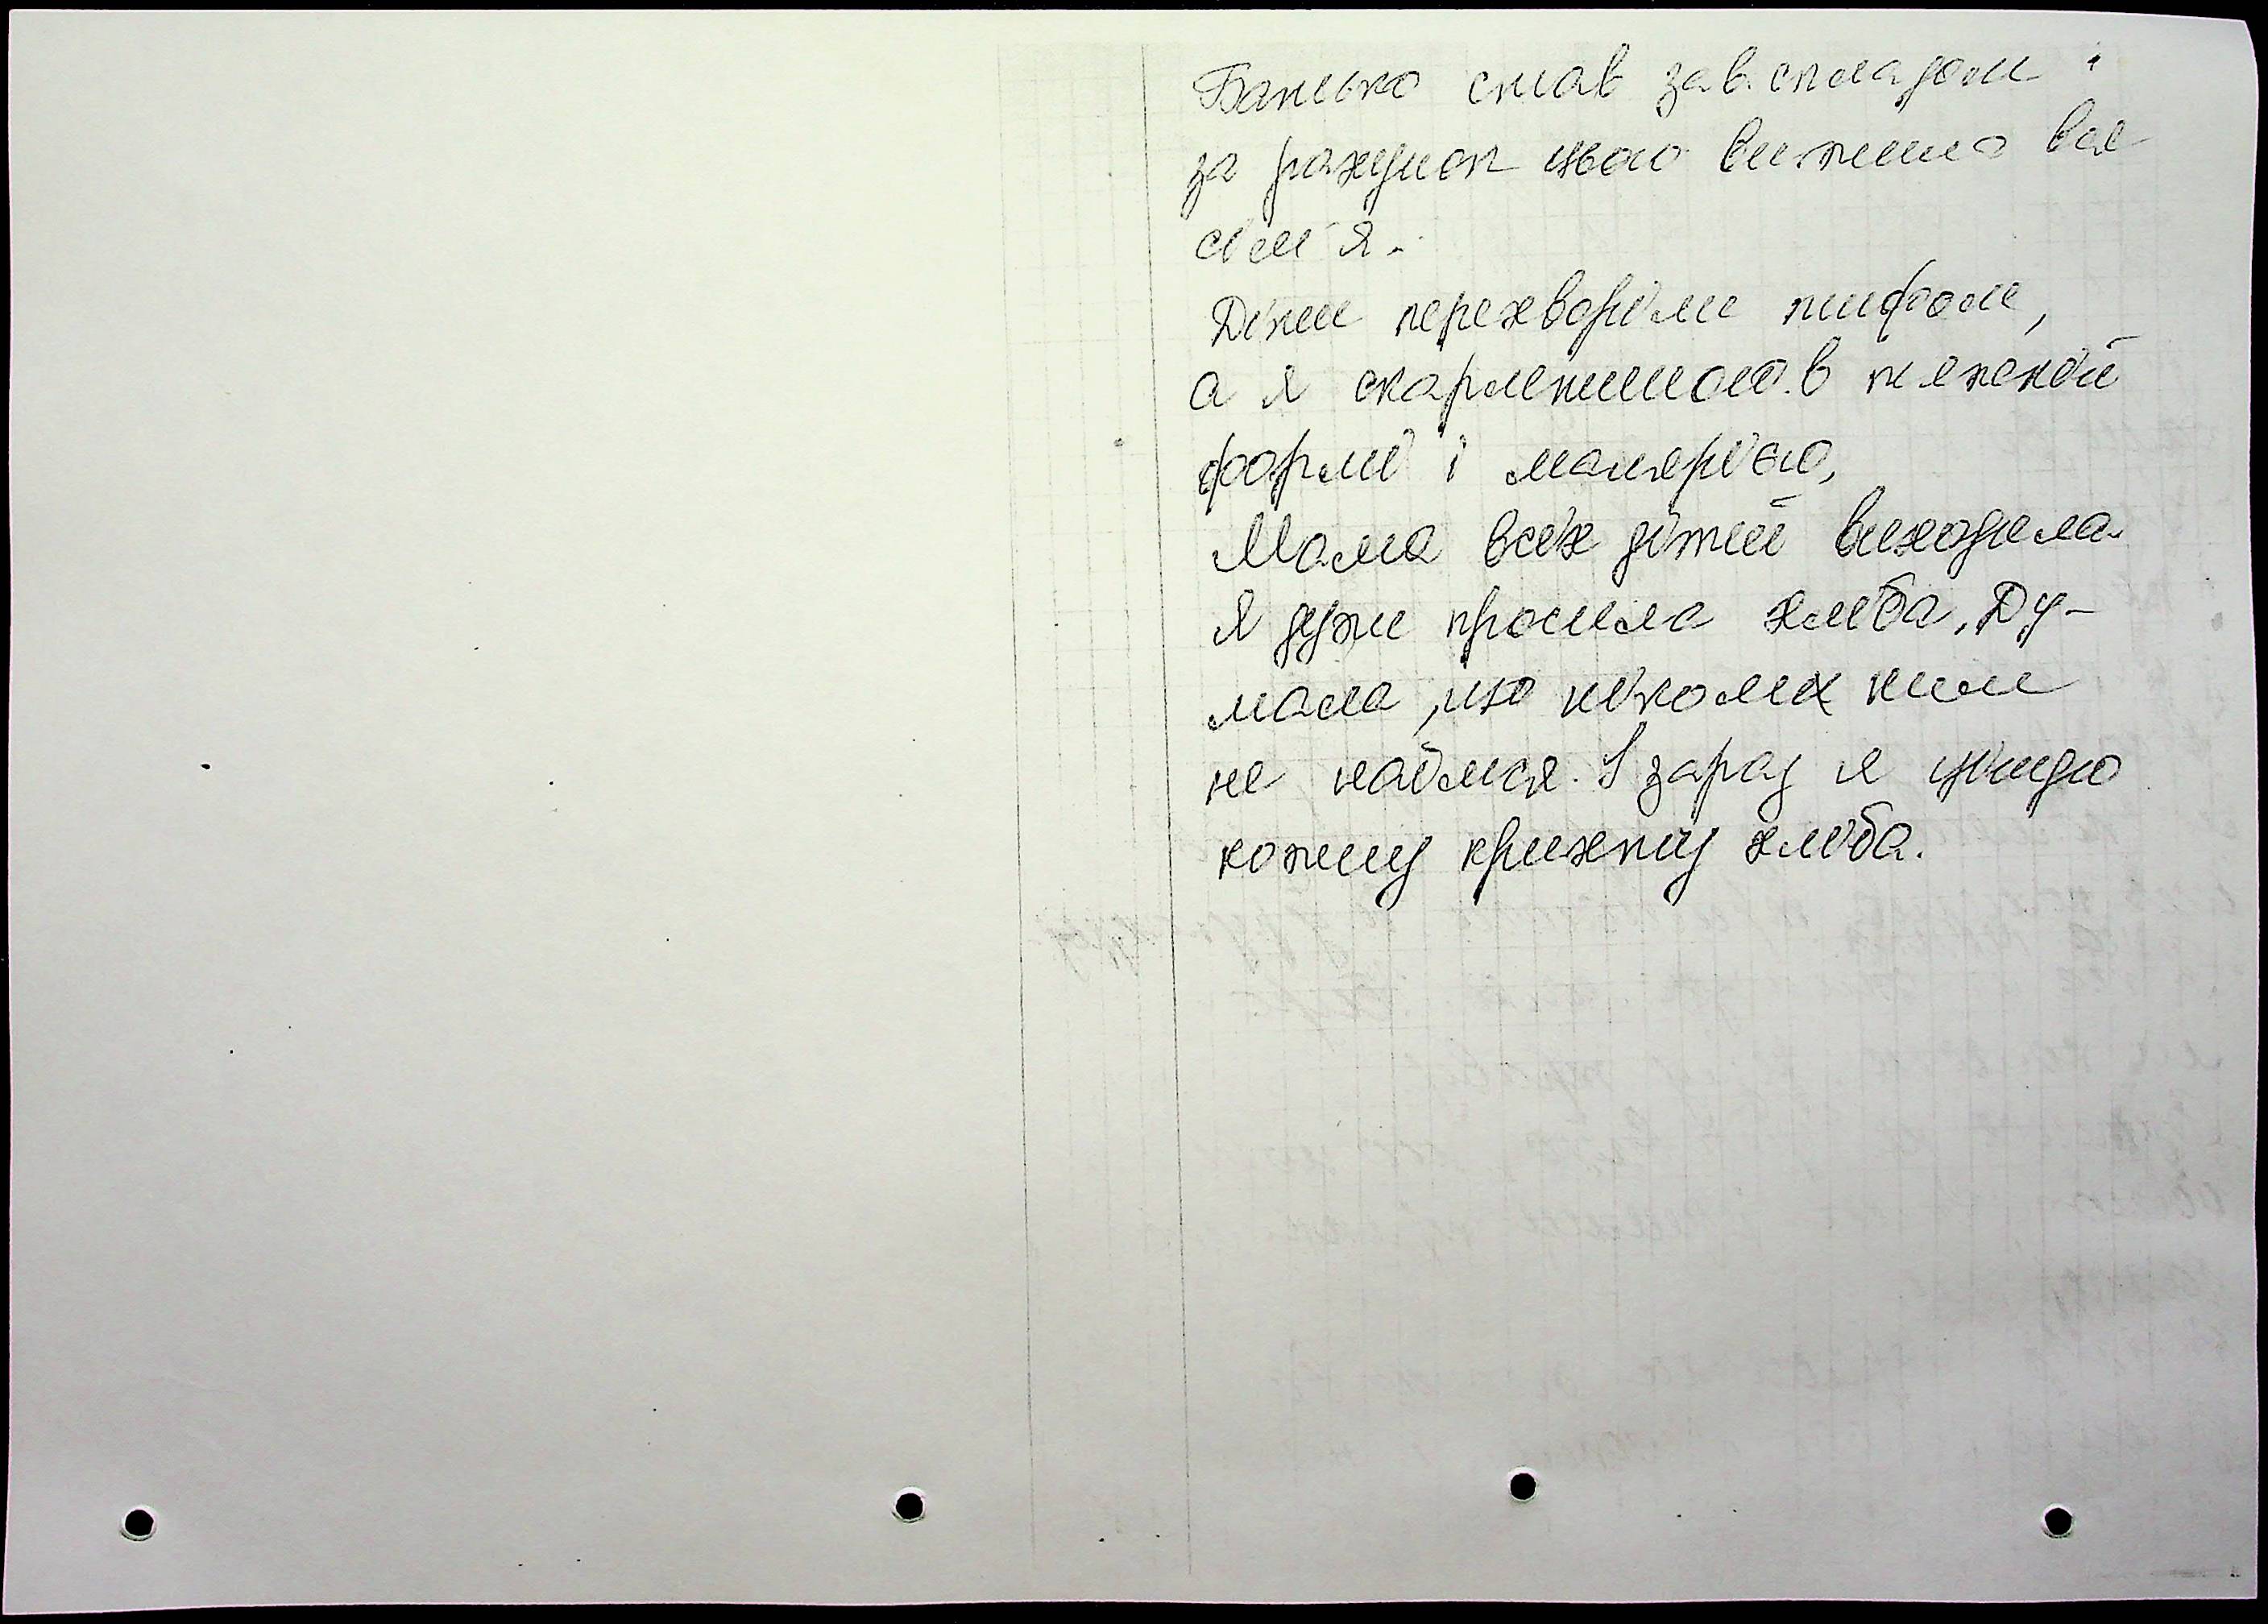 Батько став зав. складом і
за рахунок цього вижила вся
сім'я.
Діти перехворіли тифом,
а я скарлетиною в тяжкій
формі і малярією,
Мама всіх дітей виходила.
Я дуже просила хліба, Ду-
мала, що ніколи ним
не наїмся. І зараз я ціную
кожну крихту хліба.